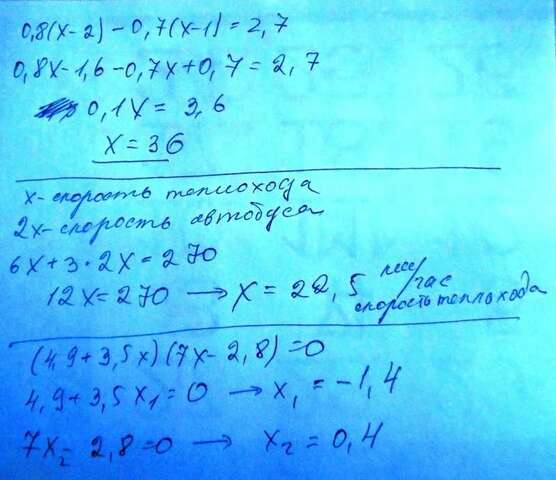 0,8(x-2) - 0,7(x-1) = 2,7
0,8x-1,6-0,7x+0,7 = 2,7
0,1x = 3,6
x = 36
x - скорость теплохода
2x - скорость автобуса
6x+3·2x = 270
12x = 270 → x = 22,5 км/час
скорость теплохода
(4,9+3,5x)(7x-2,8)=0
4,9+3,5x₁=0 → x₁ = -1,4
7x₂- 2,8=0 → x₂ = 0,4